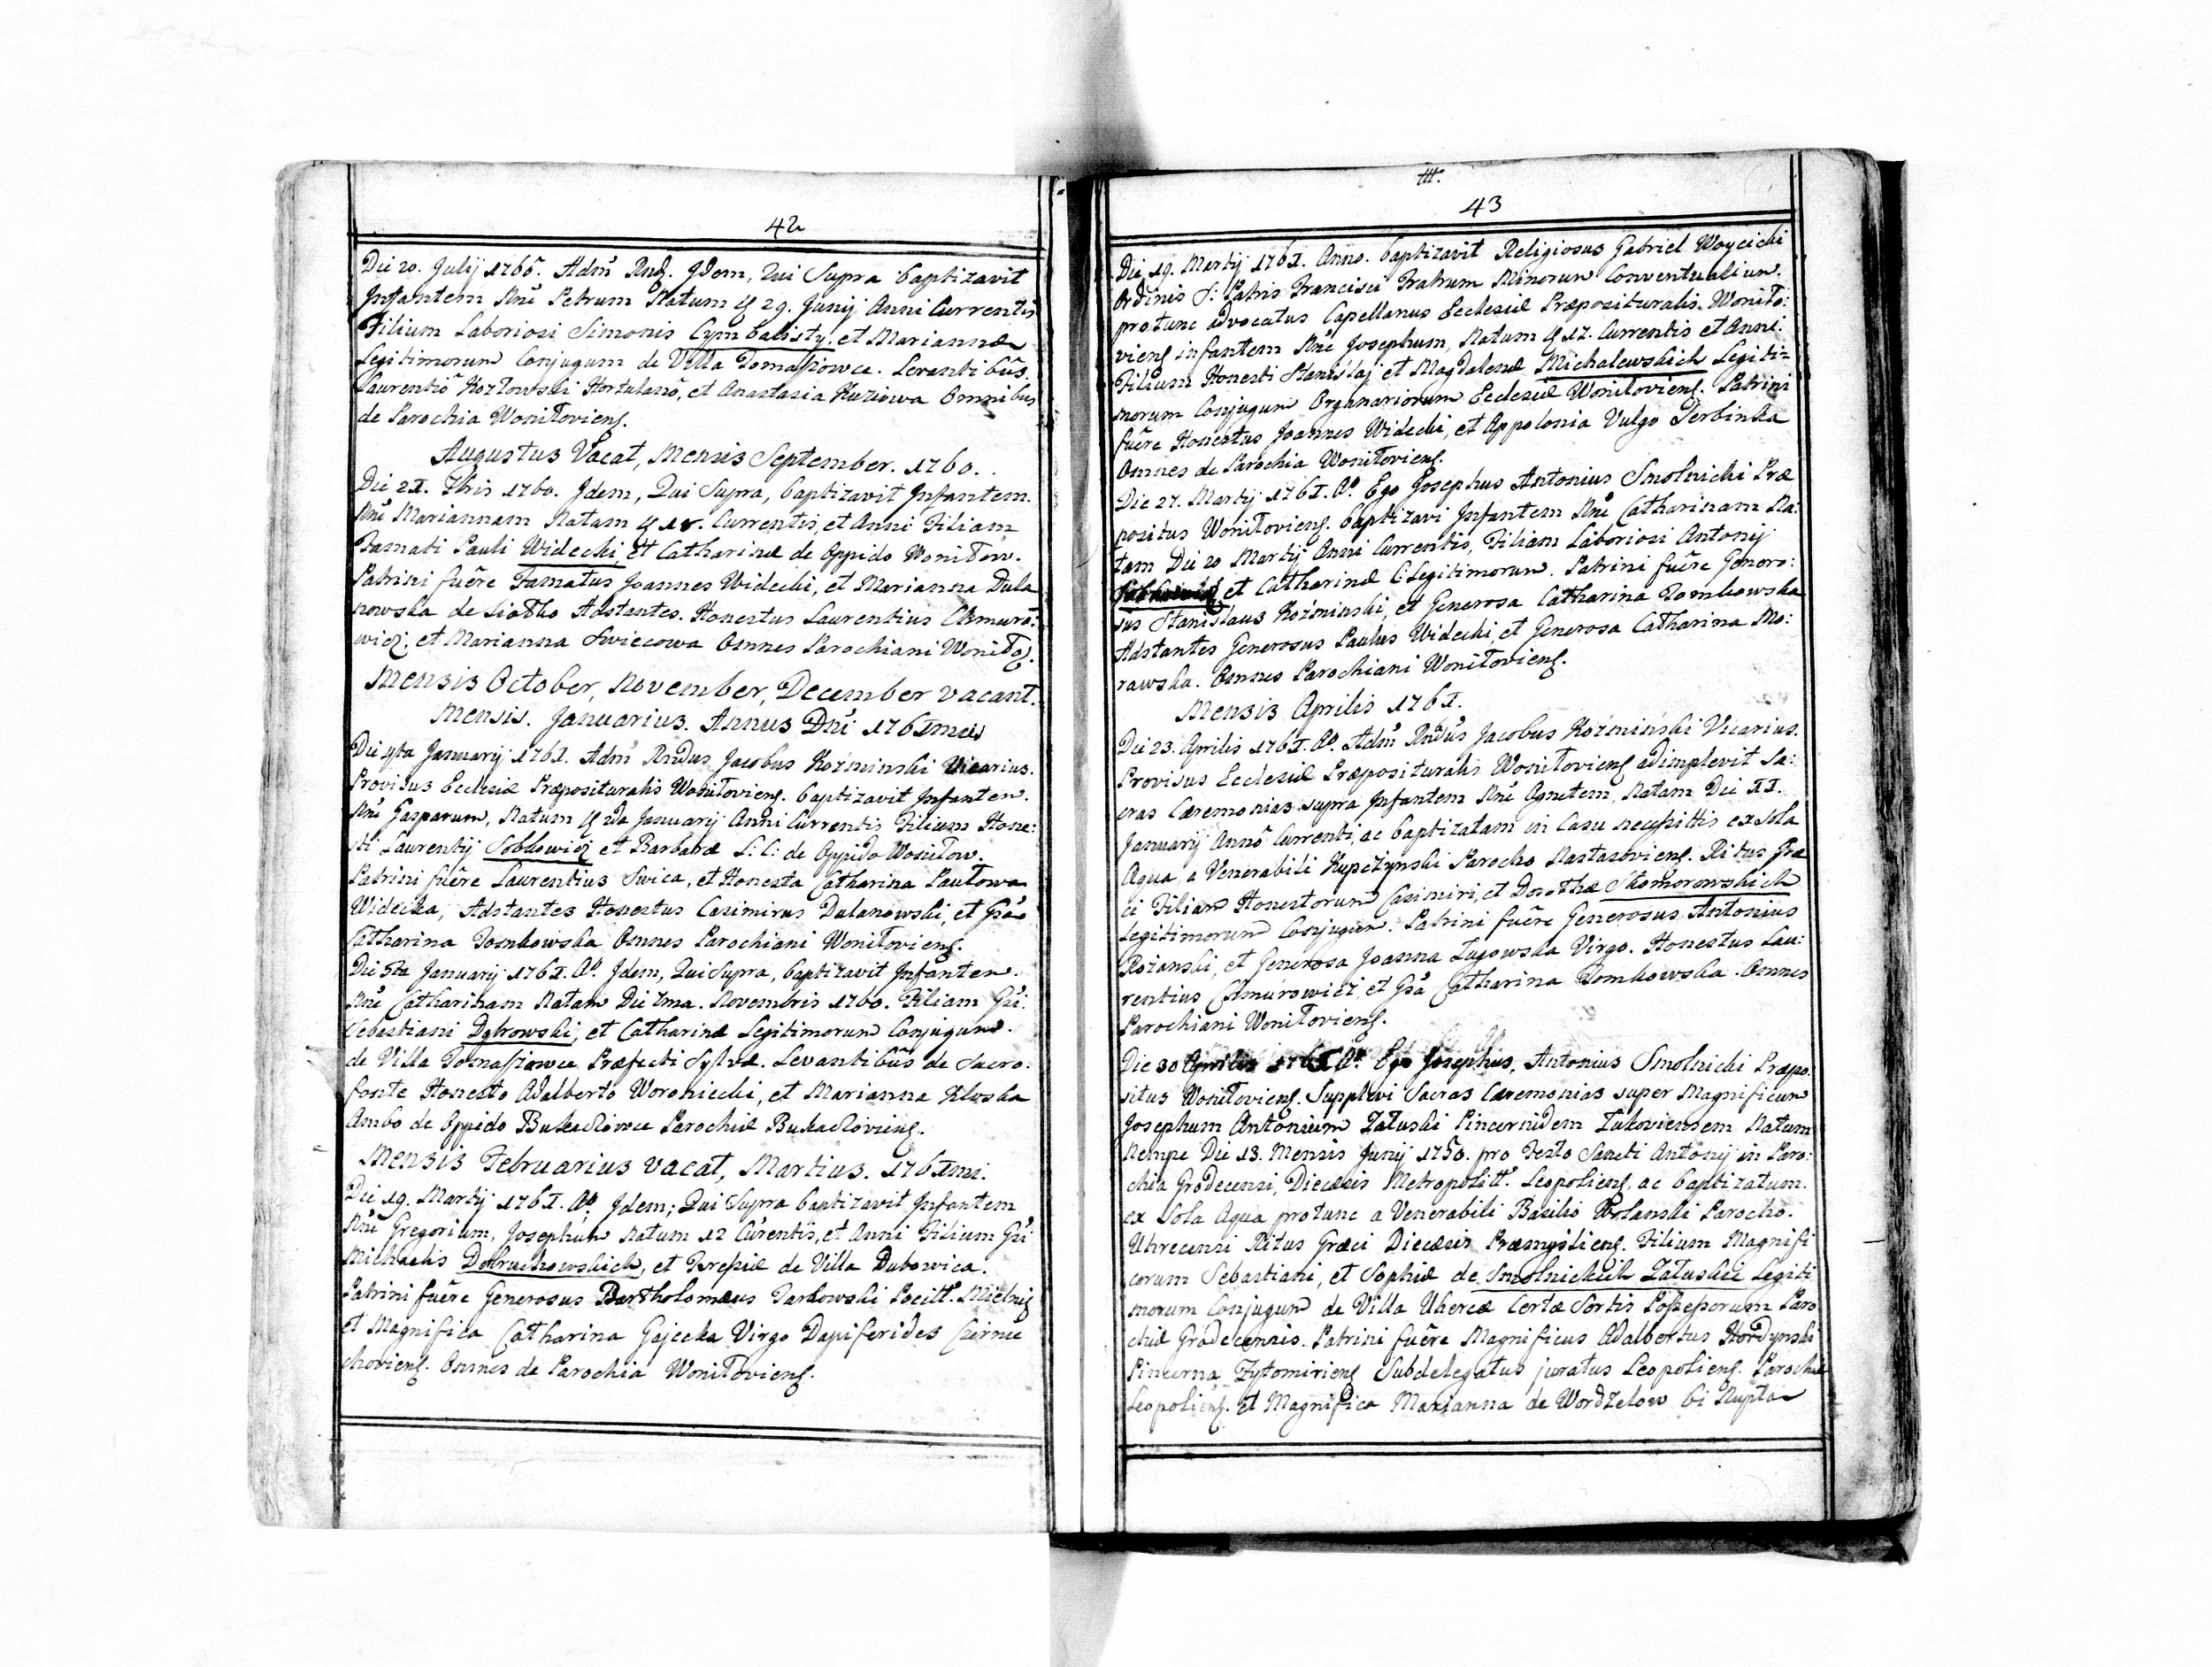 42
Die 20. Julij 1760. Adm̃ Rnd9. Idem, Qui Supra baptizavit
Infantem Nñe Petrum Natum 29. Junij Anni Currentis
Filium Laboriosi Simonis Cymbalisty, et Mariannæ
Legitimorum Conjugum de Villa Tomaszowce. Levantibus.
Laurentio Kozłowski Hortulano, et Anastasia Kuziowa Omnibus
de Parochia Woniłoviens.
Augustus Vacat, Mensis September. 1760.
Die 21. 7bris 1760. Idem, Qui Supra, baptizavit Infantem.
Nñe Mariannam Natam 18. Currentis, et Anni Filiam
Famati Pauli Widecki, et Catharinæ de Oppido Woniłow.
Patrini fuêre Famatus Joannes Widecki, et Marianna Dula
nowska de Siołko Adstantes. Honestus Laurentius Chmuro:
wicz, et Marianna Swiecowa Omnes Parochiani Woniło.
Mensis October, November, December vacant.
Mensis. Januarius. Annus Dñi 1761mus
Die 4ta Januarij 1761. Adm̃ Rndus Jacobus Koźminski Vicarius.
Provisus Ecclesiæ Præposituralis Woniłoviens. baptizavit Infantem.
Nñe Gasparum, Natum 2da Januarij Anni Currentis Filium Hone:
sti Laurentij Sobkowicz et Barbaræ L: C: de Oppido Woniłow.
Patrini fuêre Laurentius Swica, et Honesta Catharina Pawłowa
Widecka, Adstantes Honestus Casimirus Dulanowski, et Gsa
Catharina Tomkowska Omnes Parochiani Woniłoviens.
Die 5ta Januarij 1761. Ao. Idem, Qui Supra, baptizavit Infantem.
Nñe Catharinam Natam Die 7ma. Novembris 1760. Filiam Gsi:
Sebastiani Dąbrowski, et Catharinæ Legitimorum Conjugum.
de Villa Tomaszowce Præfecti Sylvæ. Levantibus de Sacro.
fonte Honesto Adalberto Woroniecki, et Marianna
Ambo de Oppido Bukaczowce Parochiæ Bukaczoviens.
Mensis Februarius vacat, Martius. 1761mi.
Die 19. Martij 1761. Ao. Idem; Qui Supra baptizavit Infantem
Nñe Gregorium, Josephum Natum 12 Currentis, et Anni Filium Gsi
Michaelis Dobruchowskich, et Teresiæ de Villa Dubowica.
Patrini fuêre Generosus Bartholomæus Tarkowski Pocill. Mielnic
et Magnifica Catharina Gajecka Virgo Dapiferides Czernie
choviens. Omnes de Parochia Woniłoviens.
43
Die 19. Martij 1761. Anno. baptizavit Religiosus Gabriel Woycicki
Ordinis S: Patris Francisci Fratrum Minorum Conventualium.
protunc advocatus Capellanus Ecclesiæ Præposituralis. Woniło:
viens infantem Nñe Josephum, Natum 17. Currentis et Anni.
Filium Honesti Stanislaj et Magdalenæ Michalewskich Legiti=
morum Conjugum Organariorum Ecclesiæ Woniłoviens. Patrini
fuêre Honestus Joannes Widecki, et Appolonia Vulgo Serbinka
Omnes de Parochia Woniłoviens.
Die 27. Martij 1761. Ao. Ego Josephus Antonius Smolnicki Præ
positus Woniłoviens. baptizavi Infantem Nñe Catharinam Na:
tam Die 20 Martij Anni Currentis, Filiam Laboriosi Antonij
et Catharinæ C: Legitimorum. Patrini fuêre Genero:
sus Stanislaus Koźminski, et Generosa Catharina Tomkowska
Adstantes Generosus Paulus Widecki, et Generosa Catharina Mo:
rawska. Omnes Parochiani Woniłoviens.
Mensis Aprilis 1761.
Die 23. Aprilis 1761. Ao. Adm̃ Rndus Jacobus Koźmiński Vicarius.
Provisus Ecclesiæ Præposituralis Woniłoviens adimplevit Sa:
cras Cæremonias supra Infantem Nñe Agnetem, Natam Die 11.
Januarij Anno Currenti, ac baptizatam in Casu necessitis ex sola
Aqua, a Venerabili Kupczynski Parocho Nastasoviens. Ritus Græ
ci Filiam Honestorum Casimiri, et Dorothæ Skomorowskich
Legitimorum Conjugum. Patrini fuêre Generosus Antonius
Rożanski, et Generosa Joanna Ługowska Virgo. Honestus Lau:
rentius Chmurowicz, et Gsa Catharina Tomkowska. Omnes
Parochiani Woniłoviens.
Die 30 Aprilis 1761 Ao. Ego Josephus, Antonius Smolnicki Præpo.
situs Woniłoviens. Supplevi Sacras Cæremonias super Magnificum
Josephum Antonium Załuski Pincernidem Łukoviensem Natum
Nempe Die 13. Mensis Junij 1750. pro Festo Sancti Antonij in Paro:
chia Grodecensi, Diecæsis Metropolitt. Leopoliens. ac baptizatum.
ex Sola Aqua protunc a Venerabili Basilio Wolanski Parocho.
Uhrecensi Ritus Græci Diecæsis Præmysliens. Filium Magnifi
corum Sebastiani, et Sophiæ de Smolnickich Załuskie Legiti
morum Conjugum de Villa Uherce Certæ Sortis Possessorum Paro
chiæ Grodecensis. Patrini fuêre Magnificus Adalbertus Hordynski
Pincerna Zytomiriens Subdelegatus juratus Leopoliens. Parochiæ
Leopoliens. et Magnifica Marianna de Wordzelow bi Nupta